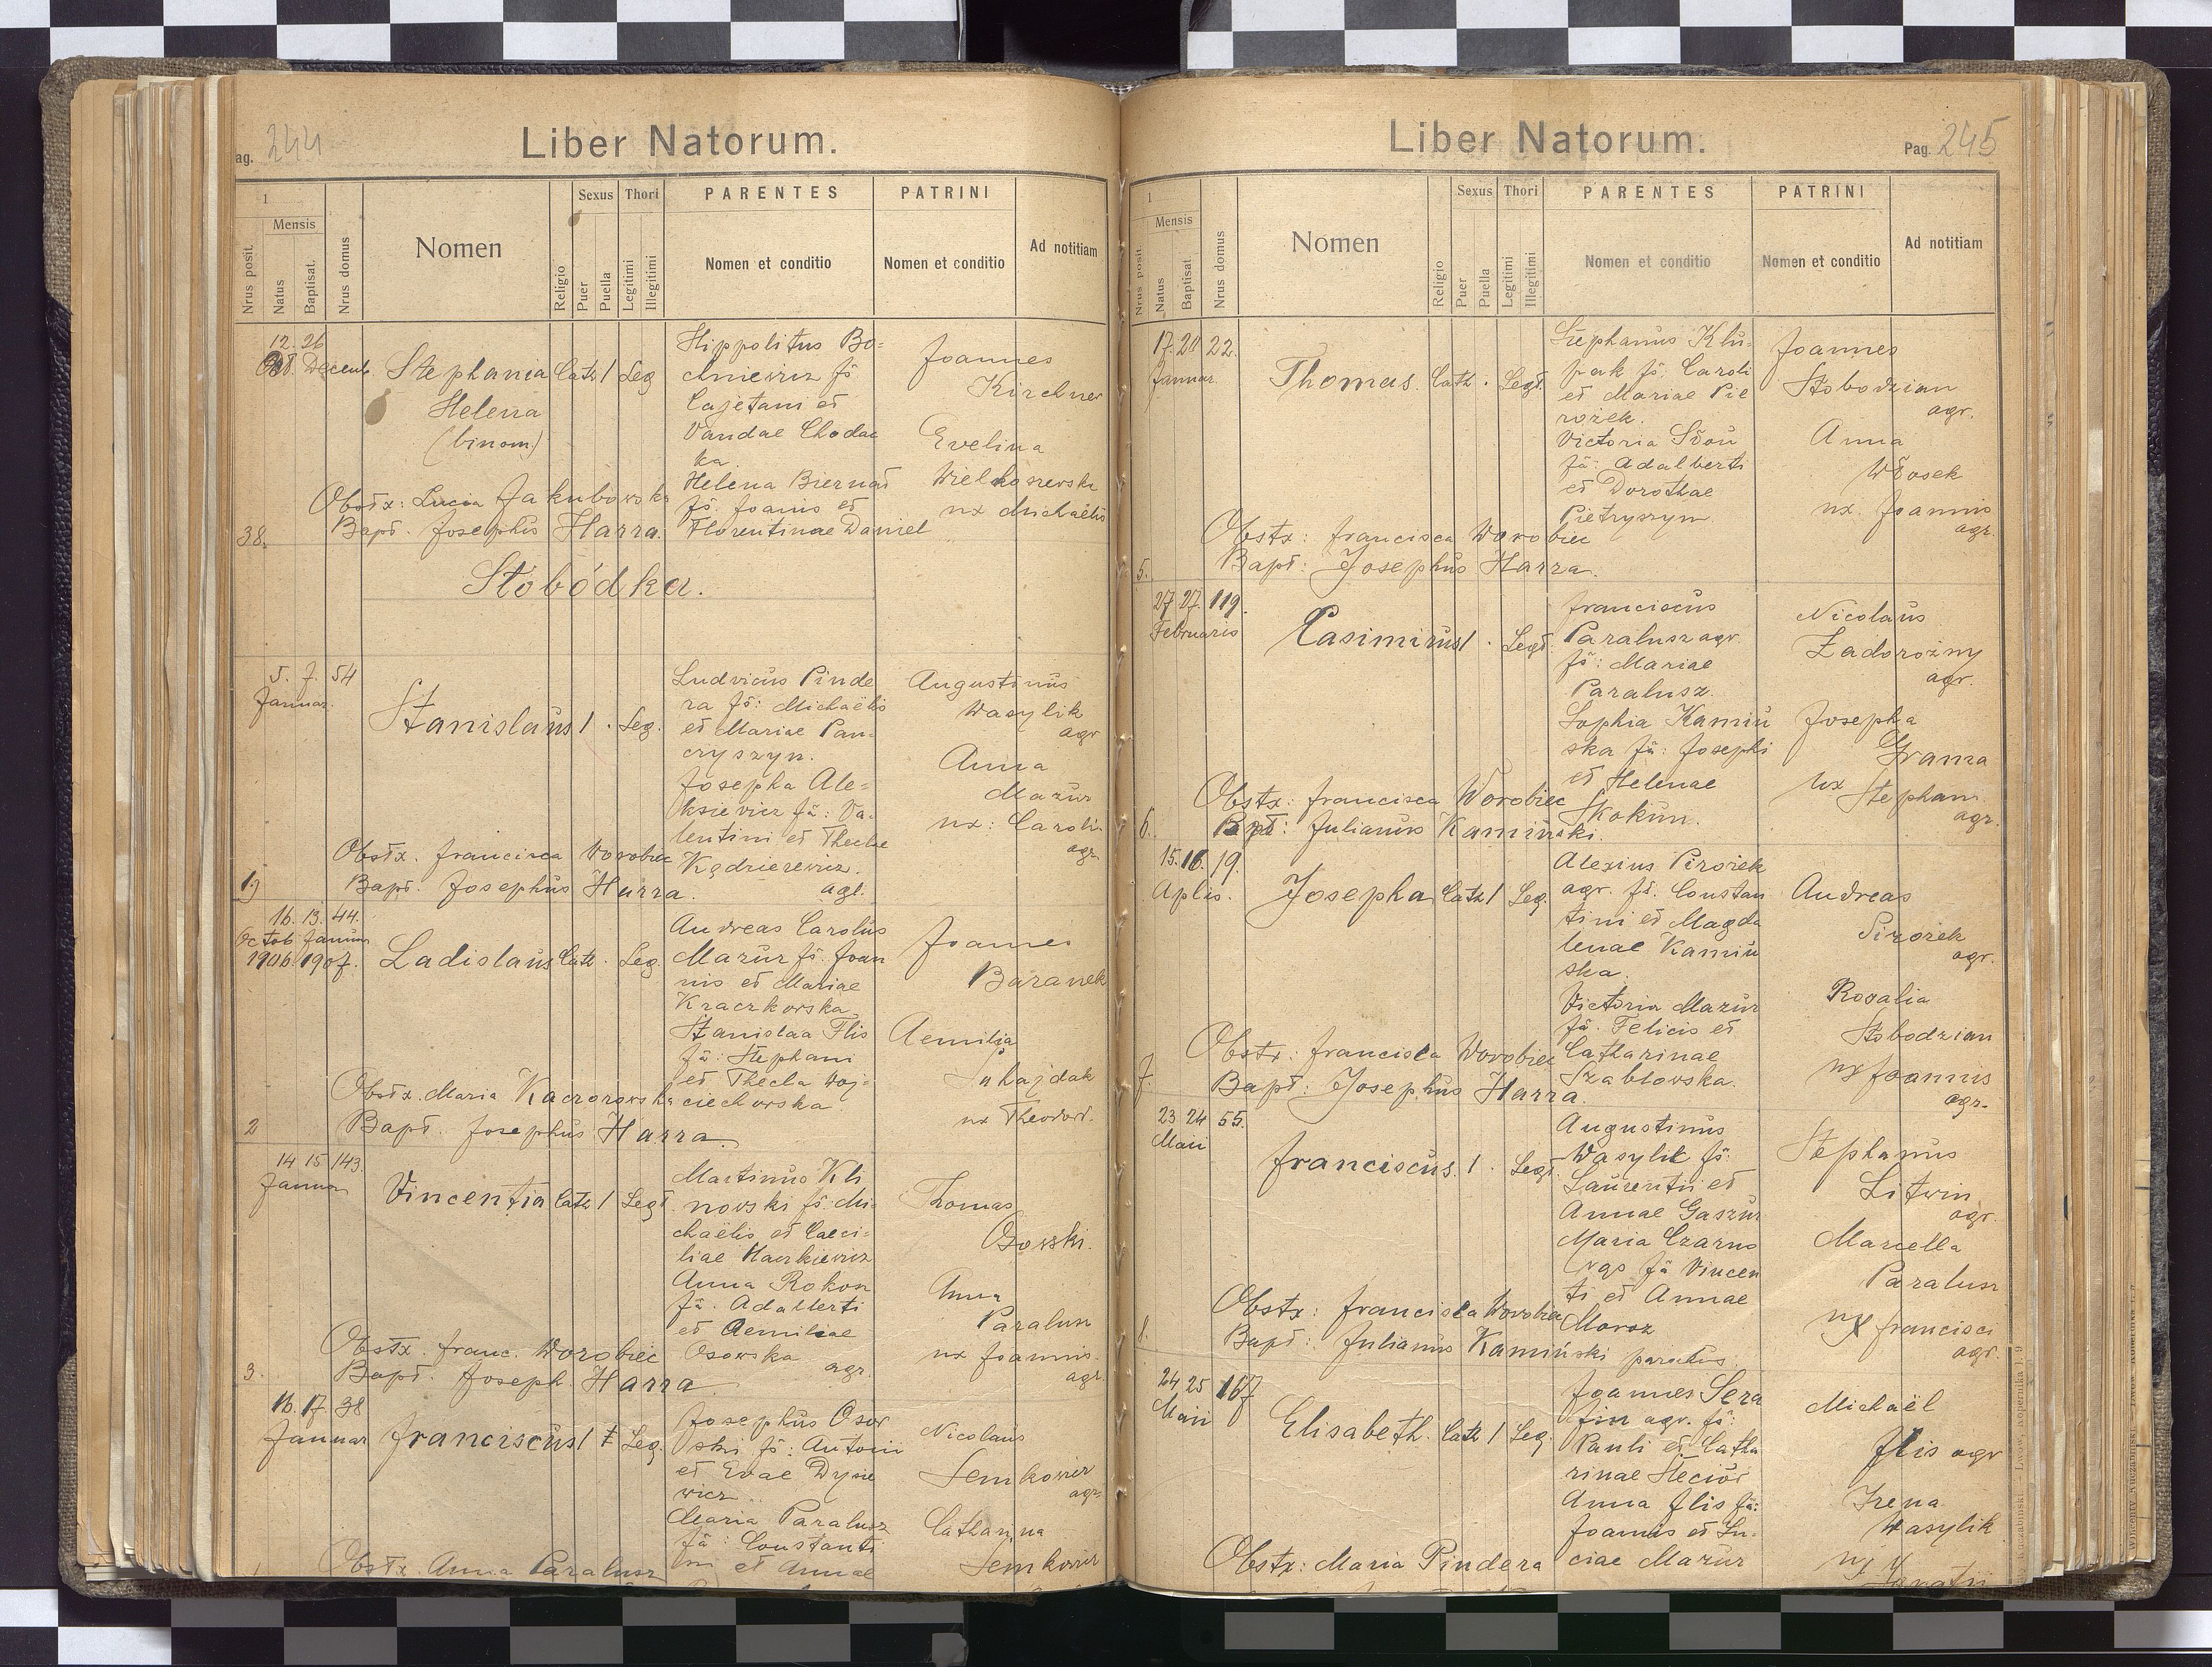 ag. 244
Liber Natorum.
1
Mensis
Nrus posit.
Natus
Baptisat.
Nrus domus
Nomen
Religio
Sexus
Puer
Puella
Thori
Legitimi
Illegitimi
PARENTES
Nomen et conditio
PATRINI
Nomen et conditio
Ad notitiam
12. 26
Oct. Decemb.
Stephania Cath 1 Leg
Helena
(binom.)
Hippolitus Bo-
chniewicz fs.
Cajetani et
Vandae Chodac
ka.
Helena Biernat
fs. Joanis et
Florentinae Daniel
Joannes
Kirchner
Evelina
ux Michaelis
Obstx: Lucia Jakubowska
Bapt. Josephus Harra.
38.
Słobódka.
5. 7. 54
Januar.
Stanislaus 1 · Leg.
Ludvicus Pinde
ra fs: Michaëlis
et Mariae Pan-
cryszyn.
Josepha Ale-
ksievicz fa: Va-
lentini et Theclae
Kędzierewicz.
agr.
Augustinus
Wasylik
agr
Anna
Mazur
ux: Caroli
agr.
Obstx. francisca Worobiec
Bapt. Josephus Harra.
1)
16. 13. 44.
Octob Januar
1906. 1907.
Ladislaus Cath · Leg.
Andreas Carolus
Mazur fs. Joan
nis et Mariae
Kraczkowska
Stanislaa Flis
fa: Stephani
et Thecla Woj-
ciechowska.
Joannes
Baranek
Aemilia
Suhajdak
ux Theodori.
Obstx. Maria Kaczorowska
Bapt. Josephus Harra.
2
14 15 143.
Januar
Vincentia Cath 1 Legt.
Martinus Kli
nowski fs. Mi-
chaëlis et Caeci-
liae Hackiewicz
Anna Rokosz
fa. Adalberti
et Aemiliae
Osowska
agr.
Thomas
Osowski.
Anna
Paralusz
ux Joannis.
agr.
Obstx. franc. Worobiec
Bapt. Joseph. Harra
3.
16. 17. 38
Januar
franciscus 1 ‡ Leg.
Josephus Osow
ski fs: Antonii
et Evae Dysie
wicz.
Maria Paralusz
fa: Constanti
ni et Annae
Nicolaus
Semkowicz
agr.
Catharina
Semkowicz
Obstx. Anna Paralusz
Liber Natorum.
Pag. 245
1
Mensis
Nrus posit.
Natus
Baptisat.
Nrus domus
Nomen
Religio
Sexus
Puer
Puella
Thori
Legitimi
Illegitimi
PARENTES
Nomen et conditio
PATRINI
Nomen et conditio
Ad notitiam
17. 20 22.
Januar.
Thomas. Cath · Legt.
Stephanus Klu-
pak fs. Caroli
et Mariae Pie
rożek.
Victoria Słoń
fa: Adalberti
et Dorothae
Pietryszyn
Joannes
Słobodzian
agr.
Anna
Włosek
ux. Joannis
agr.
Obstx: francisca Worobiec
Bapt: Josephus Harra.
5.
27 27. 119.
Februaris
Casimirus 1 · Legt.
franciscus
Paralusz agr.
fs: Mariae
Paralusz.
Sophia Kamiń
ska fa: Josephi
et Helenae
Skokun.
Nicolaus
Zadorożny
agr.
Josepha
Grama
ux Stephani
agr.
Obstx: francisca Worobiec
Bapt: Julianus Kamiński.
6.
15. 16. 19.
Aplis.
Josepha Cath 1 Leg.
Alexius Pirożek
agr. fs. Constan
tini et Magda
lenae Kamiń
ska.
Victoria Mazur
fa. Felicis et
Catharinae
Szabłowska.
Andreas
Pirożek
agr.
Rosalia
Słobodzian
ux Joannis
agr.
Obstx: francisca Worobiec
Bapt: Josephus Harra.
7.
23 24 55.
Maii
franciscus. 1 · Legt.
Augustinus
Wasylik fs:
Laurentii et
Annae Gaszur
Maria Czarno
fa Vincen
ti et Annae
Moroz
Stephanus
Litwin
agr.
Marcella
Paralusz
ux francisci
agr.
Obstx: francisca Worobiec
Bapt: Julianus Kamiński parochus.
8.
24 25 167
Maii
Elisabeth. Cath 1 Leg.
Joannes Sera
fin agr. fs:
Pauli et Catha
rinae Steciów
Anna flis fa:
Joannis et Lu-
ciae Mazur
Michaël
flis agr
Irena
Wasylik
ux
Ignatii
Obstx: Maria Pindera